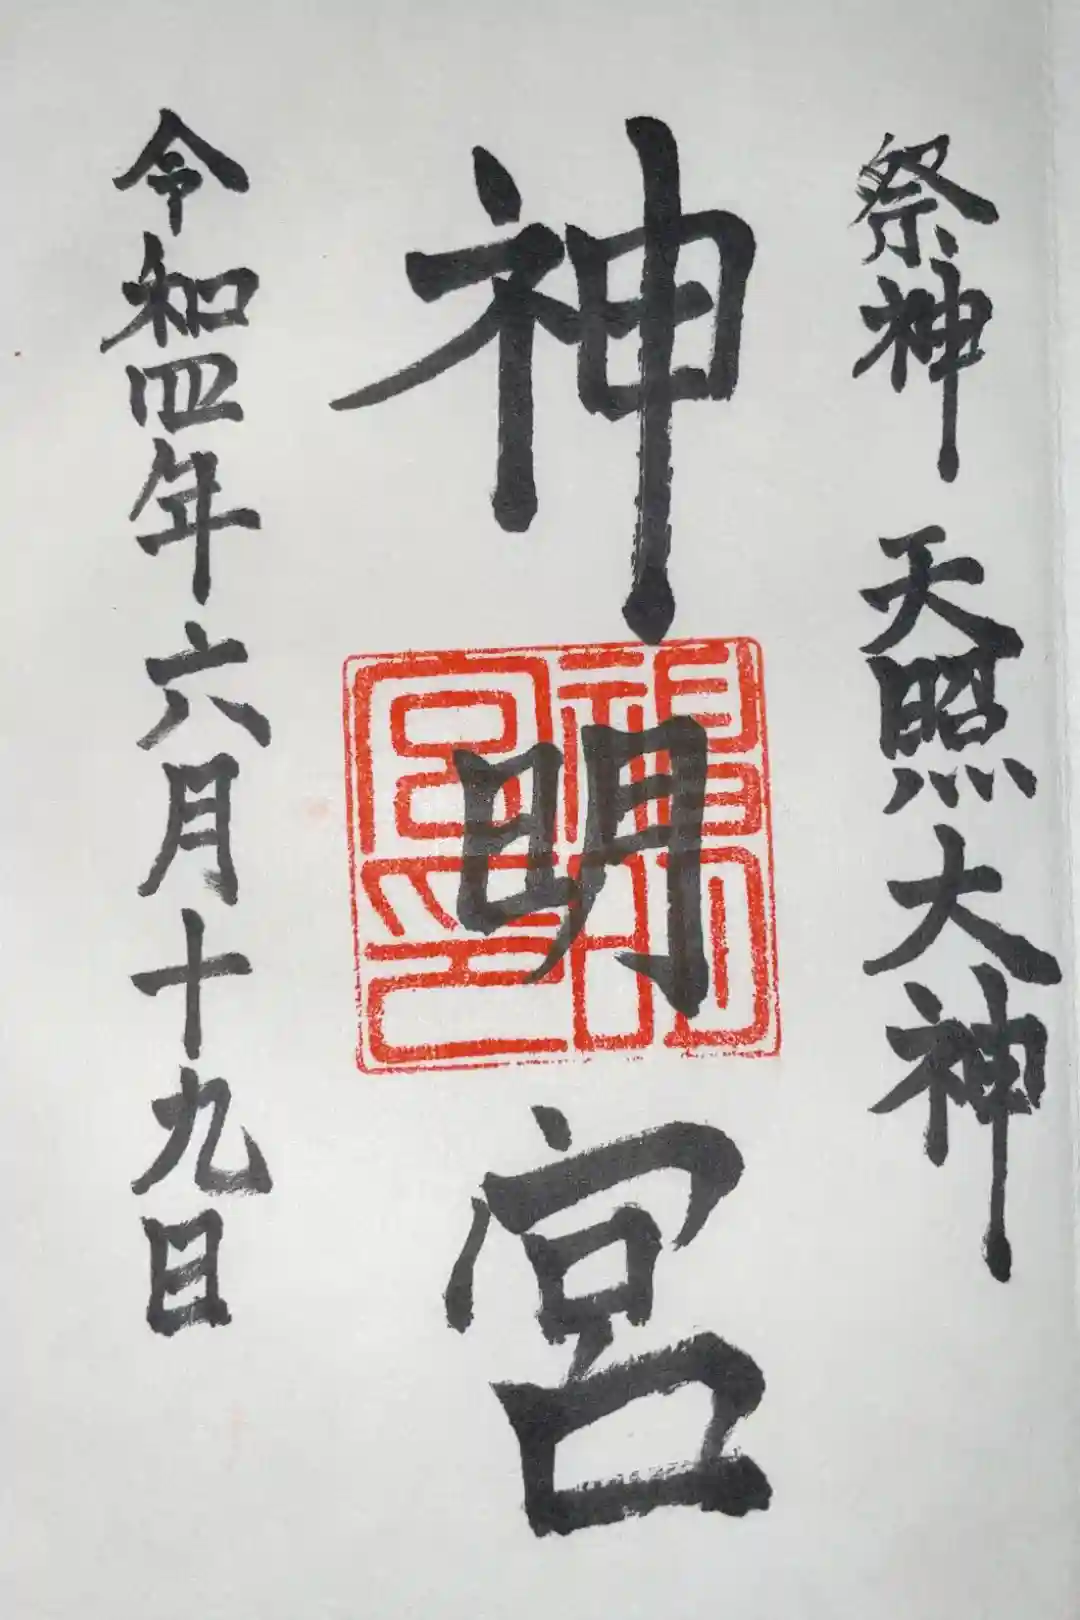 祭神 天照大神
神明宮
神明宮印
令和四年六月十九日